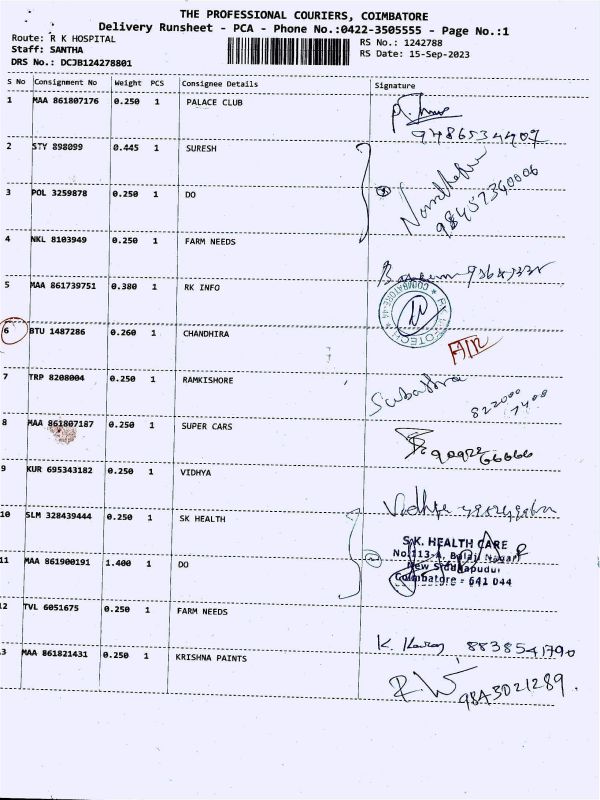 THE PROFESSIONAL COURIERS, COIMBATORE
Delivery Runsheet - PCA - Phone No.:0422-3505555 - Page No.:1
Route: R K HOSPITAL
RS No.: 1242788
Staff: SANTHA
RS Date: 15-Sep-2023
DRS No.: DCJB124278801
S No Consignment No Weight PCS Consignee Details Signature
1 MAA 861807176 0.250 1 PALACE CLUB
9486534409
2 STY 898099 0.445 1 SURESH
3 POL 3259878 0.250 1 DO
98457340006
4 NKL 8103949 0.250 1 FARM NEEDS
5 MAA 861739751 0.380 1 RK INFO
COIMBATORE-44
6 BTU 1487286 0.260 1 CHANDHIRA
7 TRP 8208004 0.250 1 RAMKISHORE
Subathra
8 MAA 861807187 0.250 1 SUPER CARS
9092266666
9 KUR 695343182 0.250 1 VIDHYA
Vidhya
10 SLM 328439444 0.250 1 SK HEALTH
S.K. HEALTH CARE
No.113-A, Balaji Nagar
11 MAA 861900191 1.400 1 DO
New Siddhapudur
Coimbatore - 641 044
12 TVL 6051675 0.250 1 FARM NEEDS
8838541790
3 MAA 861821431 0.250 1 KRISHNA PAINTS
9843021289.